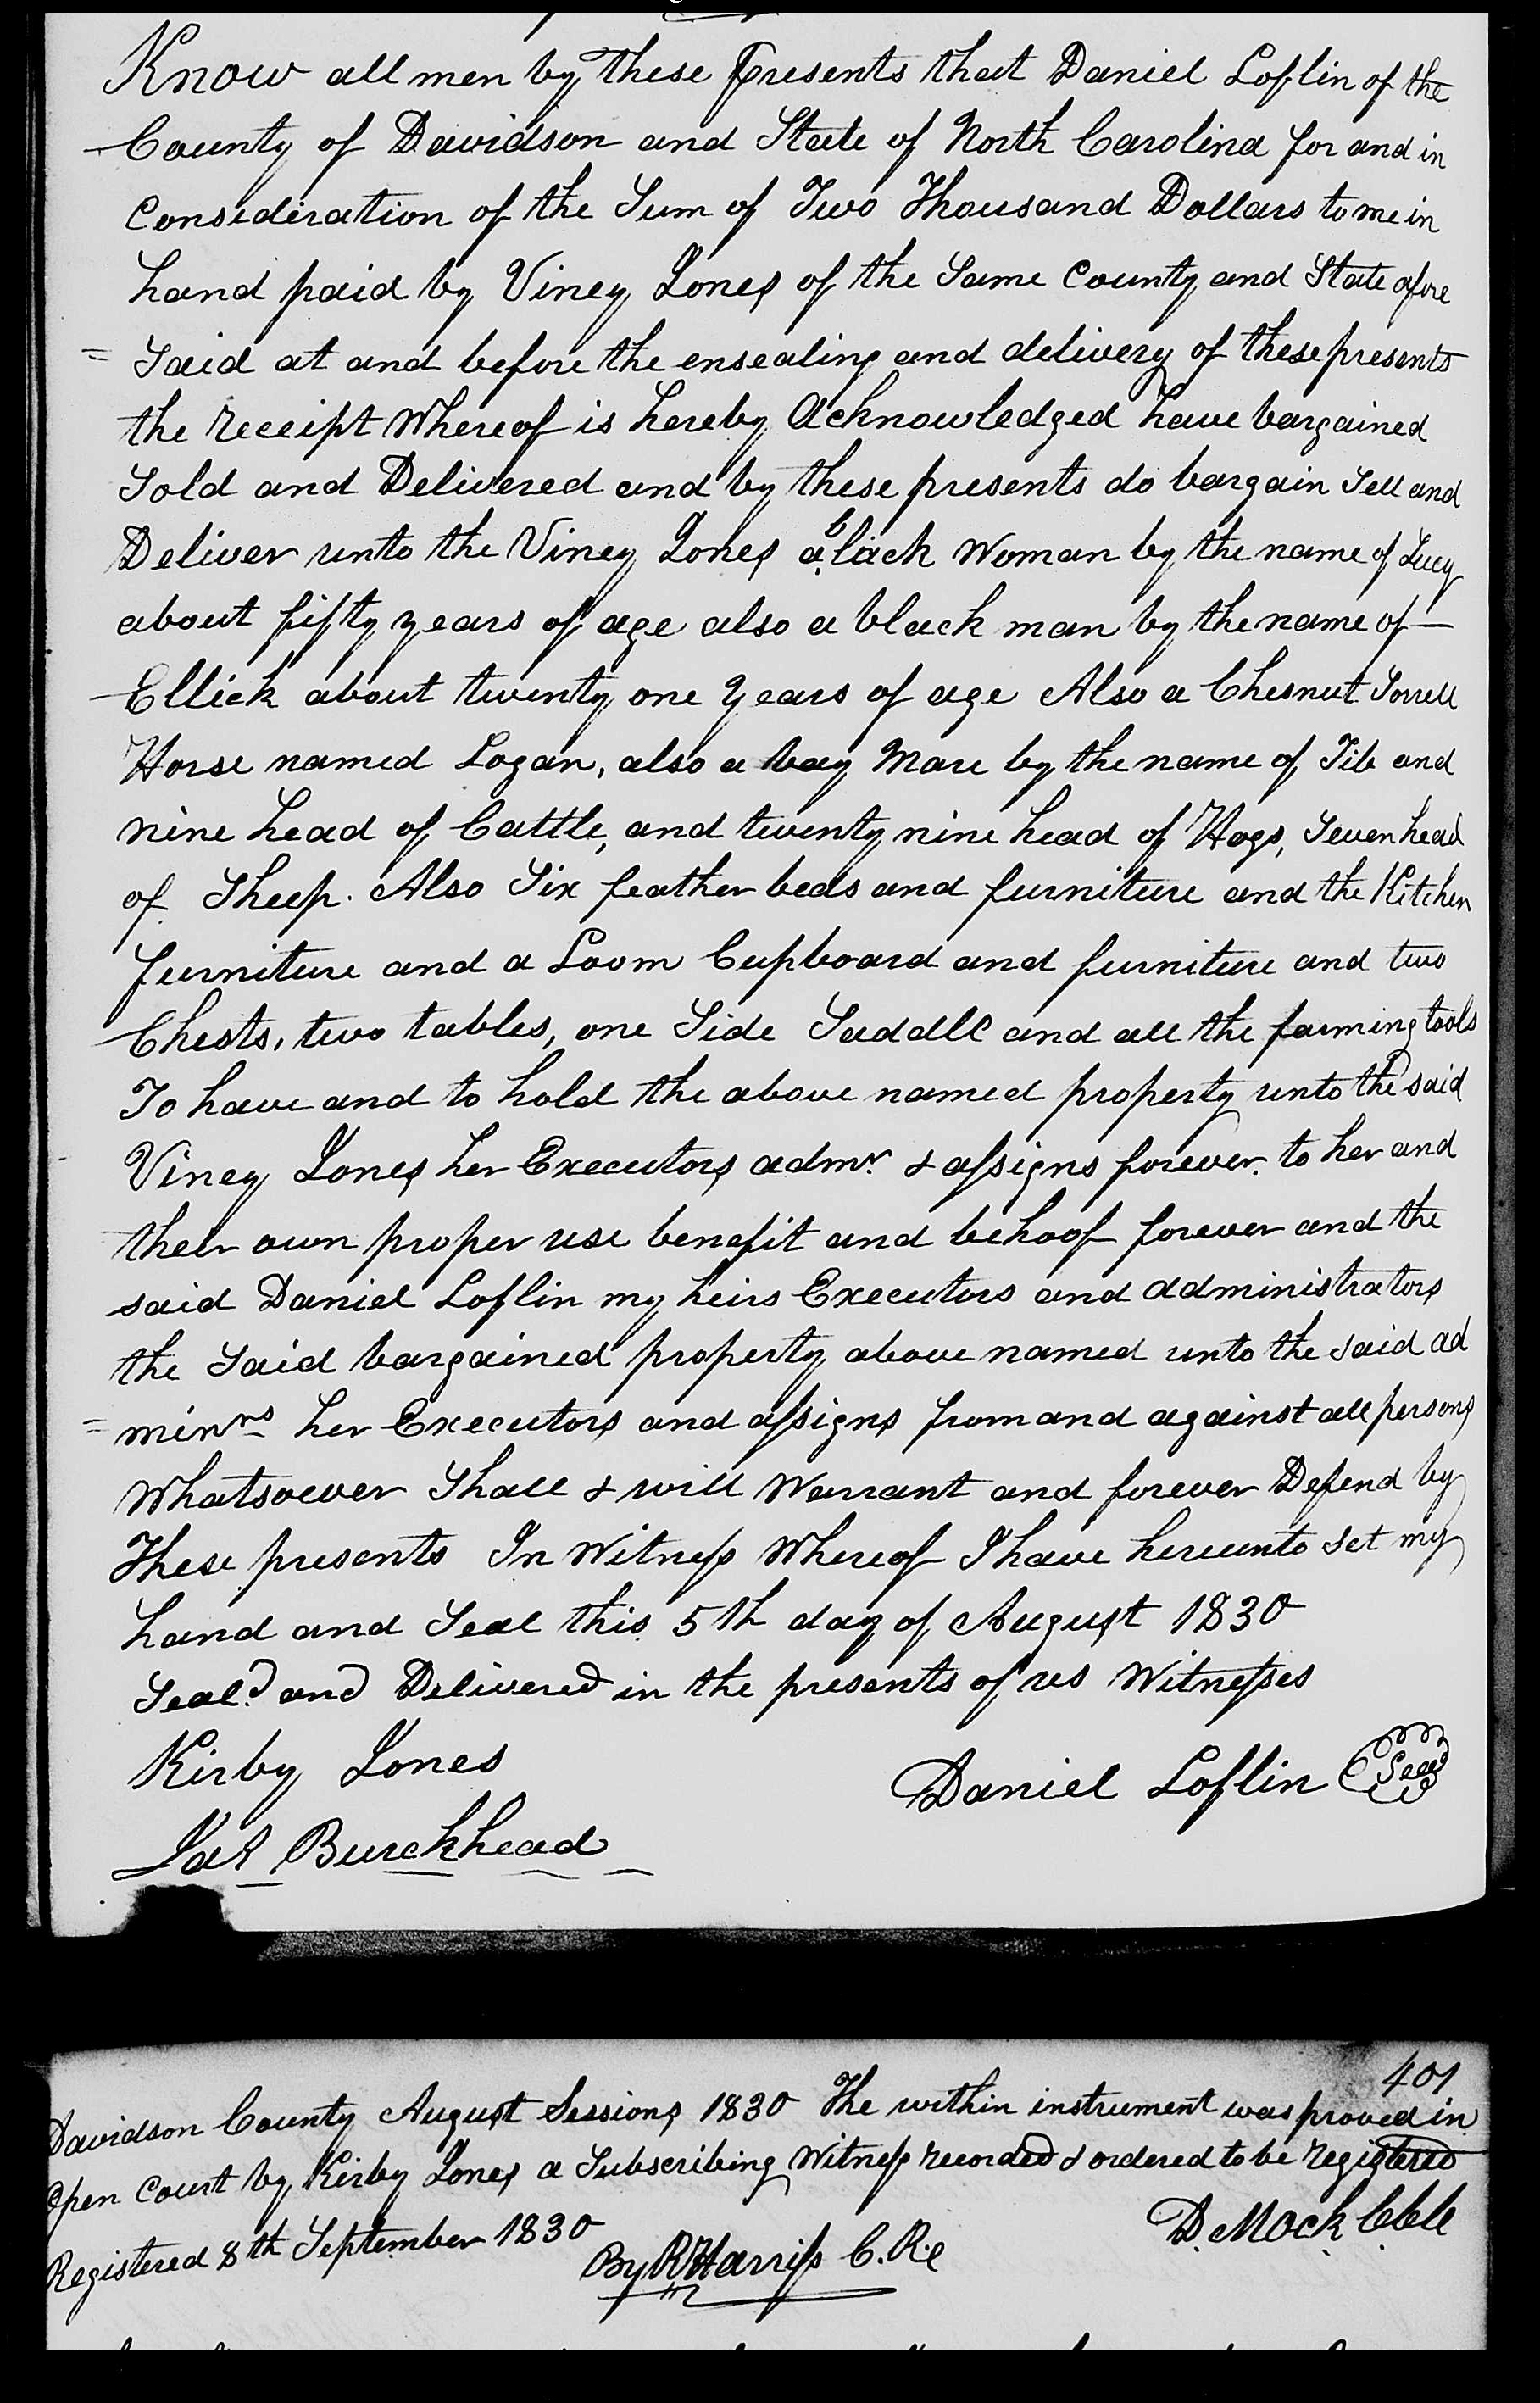 Know all men by these Presents that Daniel Loflin of the
County of Davidson and State of North Carolina for and in
Consideration of the Sum of Two Thousand Dollars to me in
hand paid by Viney Jones of the Same County and State afore
= Said at and before the ensealing and delivery of these presents
the receipt Whereof is hereby Acknowledged have bargained
Sold and Delivered and by these presents do bargain Sell and
Deliver unto the Viney Jones a black Woman by the name of Lucy
about fifty years of age also a black man by the name of —
Ellick about twenty one years of age Also a Chesnut Sorrell
Horse named Logan, also a bay Mare by the name of Tib and
nine head of Cattle, and twenty nine head of Hogs, Seven head
of Sheep. Also Six feather beds and furniture and the Kitchen
furniture and a Loom Cupboard and furniture and two
Chests, two tables, one Side Saddle and all the farming tools
To have and to hold the above named property unto the said
Viney Jones her Executors admr. & assigns forever. to her and
their own proper use benefit and behoof forever and the
said Daniel Loflin my heirs Executors and administrators
the Said bargained property above named unto the said ad
= minrs her Executors and assigns from and against all persons
Whatsoever Shall & will Warrant and forever Defend by
These presents In Witness Whereof I have hereunto set my
hand and Seal this 5th day of August 1830
Seald. and Delivered in the presents of us Witnesses
Kirby Jones
Daniel Loflin Seal
Jas Burckhead
401
Davidson County August Sessions 1830 The within instrument was proved in
Open Court by Kirby Jones a Subscribing Witness recorded & ordered to be registered
D. Mock Clk
Registered 8th September 1830
By R Harriss C. R.